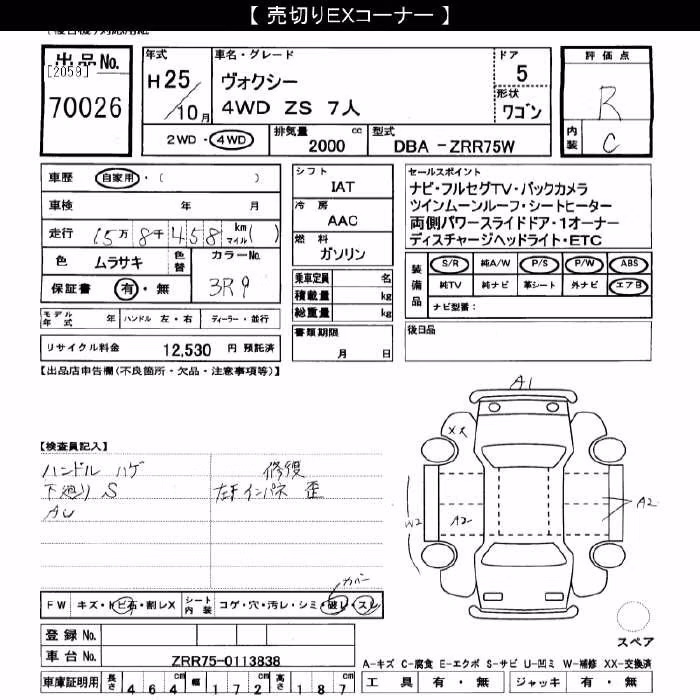 【 売切りEXコーナー 】
出品No.
[2059]
70026
年式
H25/10月
車名・グレード
ヴォクシー
4WD ZS 7人
ドア
5
形状
ワゴン
評価点
R
内装
C
2WD・4WD
排気量 cc
2000
型式
DBA -ZRR75W
車歴 自家用・( )
車検 年 月
走行 15万8千458 km マイル ( )
色 ムラサキ
色替
カラーNo.
3R9
保証書 有・無
シフト
IAT
冷房
AAC
燃料
ガソリン
乗車定員 名
積載量 kg
総重量 kg
セールスポイント
ナビ・フルセグTV・バックカメラ
ツインムーンルーフ・シートヒーター
両側パワースライドドア・1オーナー
ディスチャージヘッドライト・ETC
装備品
S/R 純A/W P/S P/W ABS
純TV 純ナビ 革シート 外ナビ エアB
ナビ型番:
モデル年式 年 ハンドル 左・右 ディーラー・並行
リサイクル料金 12,530 円 預託済
書類期限
月 日
後日品
【出品店申告欄(不良箇所・欠品・注意事項等)】
【検査員記入】
ハンドル ハゲ
下廻り S
AU
修復
左F インパネ 歪
A1
XX
W2
A2
A2
カバー
FW キズ・トビ石・割レX
シート内装 コゲ・穴・汚レ・シミ・破レ・スレ
登録No.
車台No. ZRR75-0113838
車庫証明用 長さ 464cm 幅 172cm 高さ 187cm
スペア
A-キズ C-腐食 E-エクボ S-サビ U-凹ミ W-補修 XX-交換済
工具 有・無 ジャッキ 有・無